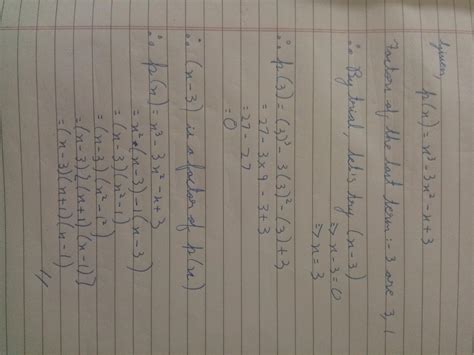 Given, p(x) = x³-3x²-x+3
Factors of the last term:- 3 are 3, 1
∴ By trial, let's try (x-3)
⇒ x-3=0
⇒ x = 3
∴ p(3) = (3)³-3(3)²-(3)+3
= 27-3×9-3+3
= 27-27
= 0
∴ (x-3) is a factor of p(x)
∴ p(x) = x³-3x²-x+3
= x²(x-3)-1(x-3)
= (x-3)(x²-1)
= (x-3)(x²-1²)
= (x-3){(x+1)(x-1)}
= (x-3)(x+1)(x-1)